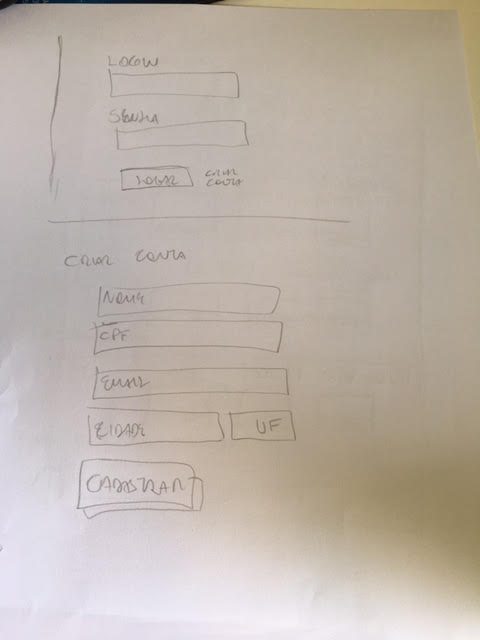 LOGIN
SENHA
LOGAR CRIAR
CONTA
CRIAR CONTA
NOME
CPF
EMAIL
CIDADE UF
CADASTRAR